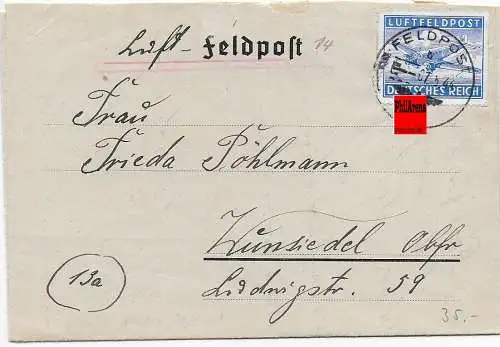 LUFTFELDPOST
FELDPOST
DEUTSCHES REICH
Luft - Feldpost 14
PhilArena
Frau
Frieda Pöhlmann
Wunsiedel Obfr
Ludwigstr. 59
13a
35.-